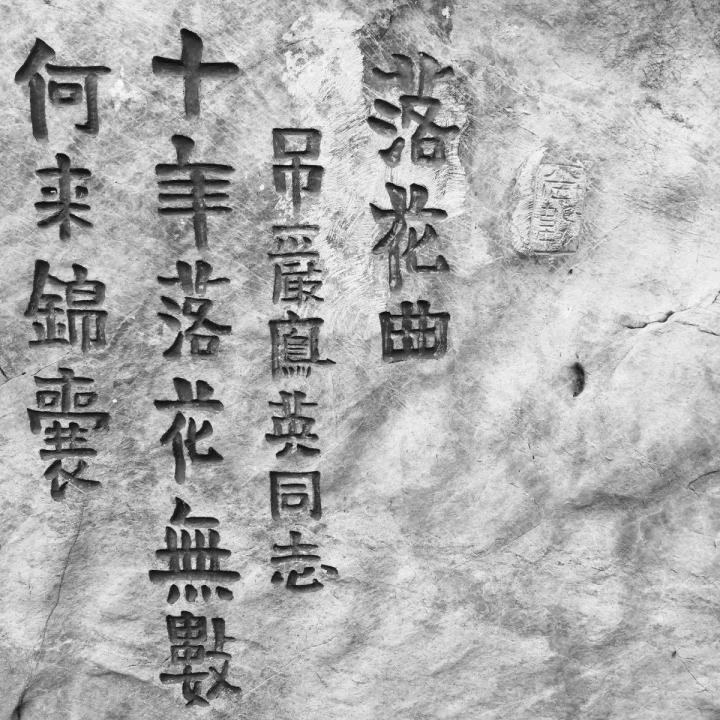 落花曲
吊嚴鳳英同志
十年落花無數
何来錦囊